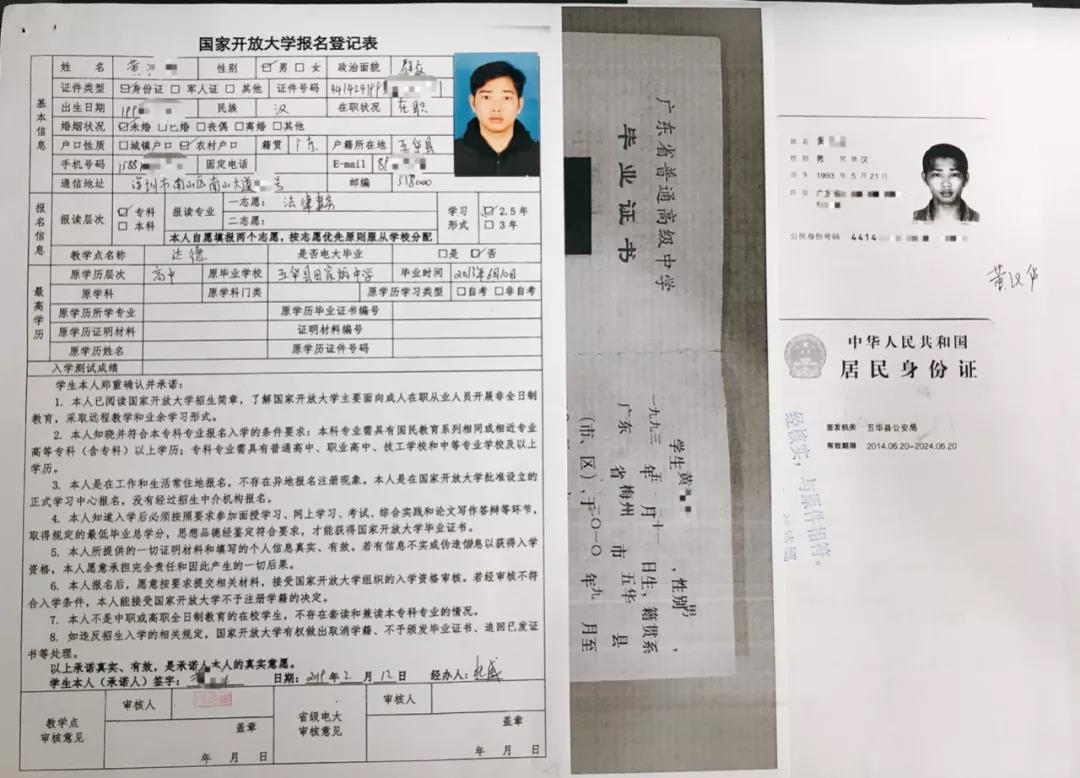 国家开放大学报名登记表
基本信息
姓 名 黄 性别 ☑男 □女 政治面貌 群众
证件类型 ☑身份证 □军人证 □其他 证件号码 44142419
出生日期 199 民族 汉 在职状况 在职
婚姻状况 ☑未婚 □已婚 □丧偶 □离婚 □其他
户口性质 □城镇户口 ☑农村户口 籍贯 广东 户籍所在地 五华县
手机号码 1588 固定电话 E-mail 89
通信地址 深圳市南山区南山大道 号 邮编 518000
报名信息
报读层次 ☑专科 □本科 报读专业 一志愿: 法律事务 学习形式 ☑2.5年 □3年
二志愿:
本人自愿填报两个志愿，按志愿优先原则服从学校分配
教学点名称 达德 是否电大毕业 □是 ☑否
最高学历
原学历层次 高中 原毕业学校 五华县田家炳中学 毕业时间 2013年6月10日
原学科 原学科门类 原学历学习类型 □自考 □非自考
原学历所学专业 原学历毕业证书编号
原学历证明材料 证明材料编号
原学历姓名 原学历证件号码
入学测试成绩
学生本人郑重确认并承诺：
1．本人已阅读国家开放大学招生简章，了解国家开放大学主要面向成人在职从业人员开展非全日制
教育，采取远程教学和业余学习形式。
2．本人知晓并符合本专科专业报名入学的条件要求：本科专业需具有国民教育系列相同或相近专业
高等专科（含专科）以上学历；专科专业需具有普通高中、职业高中、技工学校和中等专业学校及以上
学历。
3．本人是在工作和生活常住地报名，不存在异地报名注册现象。本人是在国家开放大学批准设立的
正式学习中心报名，没有经过招生中介机构报名。
4．本人知道入学后必须按照要求参加面授学习、网上学习、考试、综合实践和论文写作答辩等环节，
取得规定的最低毕业总学分，思想品德经鉴定符合要求，才能获得国家开放大学毕业证书。
5．本人所提供的一切证明材料和填写的个人信息真实、有效。若有信息不实或伪造信息以获得入学
资格，本人愿意承担完全责任和因此产生的一切后果。
6．本人报名后，愿意按要求提交相关材料，接受国家开放大学组织的入学资格审核。若经审核不符
合入学条件，本人能接受国家开放大学不予注册学籍的决定。
7．本人不是中职或高职全日制教育的在校学生，不存在套读和兼读本专科专业的情况。
8．如违反招生入学的相关规定，国家开放大学有权做出取消学籍、不予颁发毕业证书、追回已发证
书等处理。
以上承诺真实、有效，是承诺人本人的真实意愿。
学生本人（承诺人）签字： 日期：2019年2月12日 经办人：
教学点审核意见 审核人 盖章 年 月 日
省级电大审核意见 审核人 盖章 年 月 日
广东省普通高级中学
毕业证书
学生黄 ，性别男，
一九九三年五月二十一日生，籍贯系
广东省梅州市五华县
（市、区），于二〇一〇年九月至
姓名 黄
性别 男 民族 汉
出生 1993 年 5 月 21 日
住址 广东省
公民身份号码 4414
黄汉华
中华人民共和国
居民身份证
签发机关 五华县公安局
有效期限 2014.06.20-2024.06.20
经核实，与原件相符。